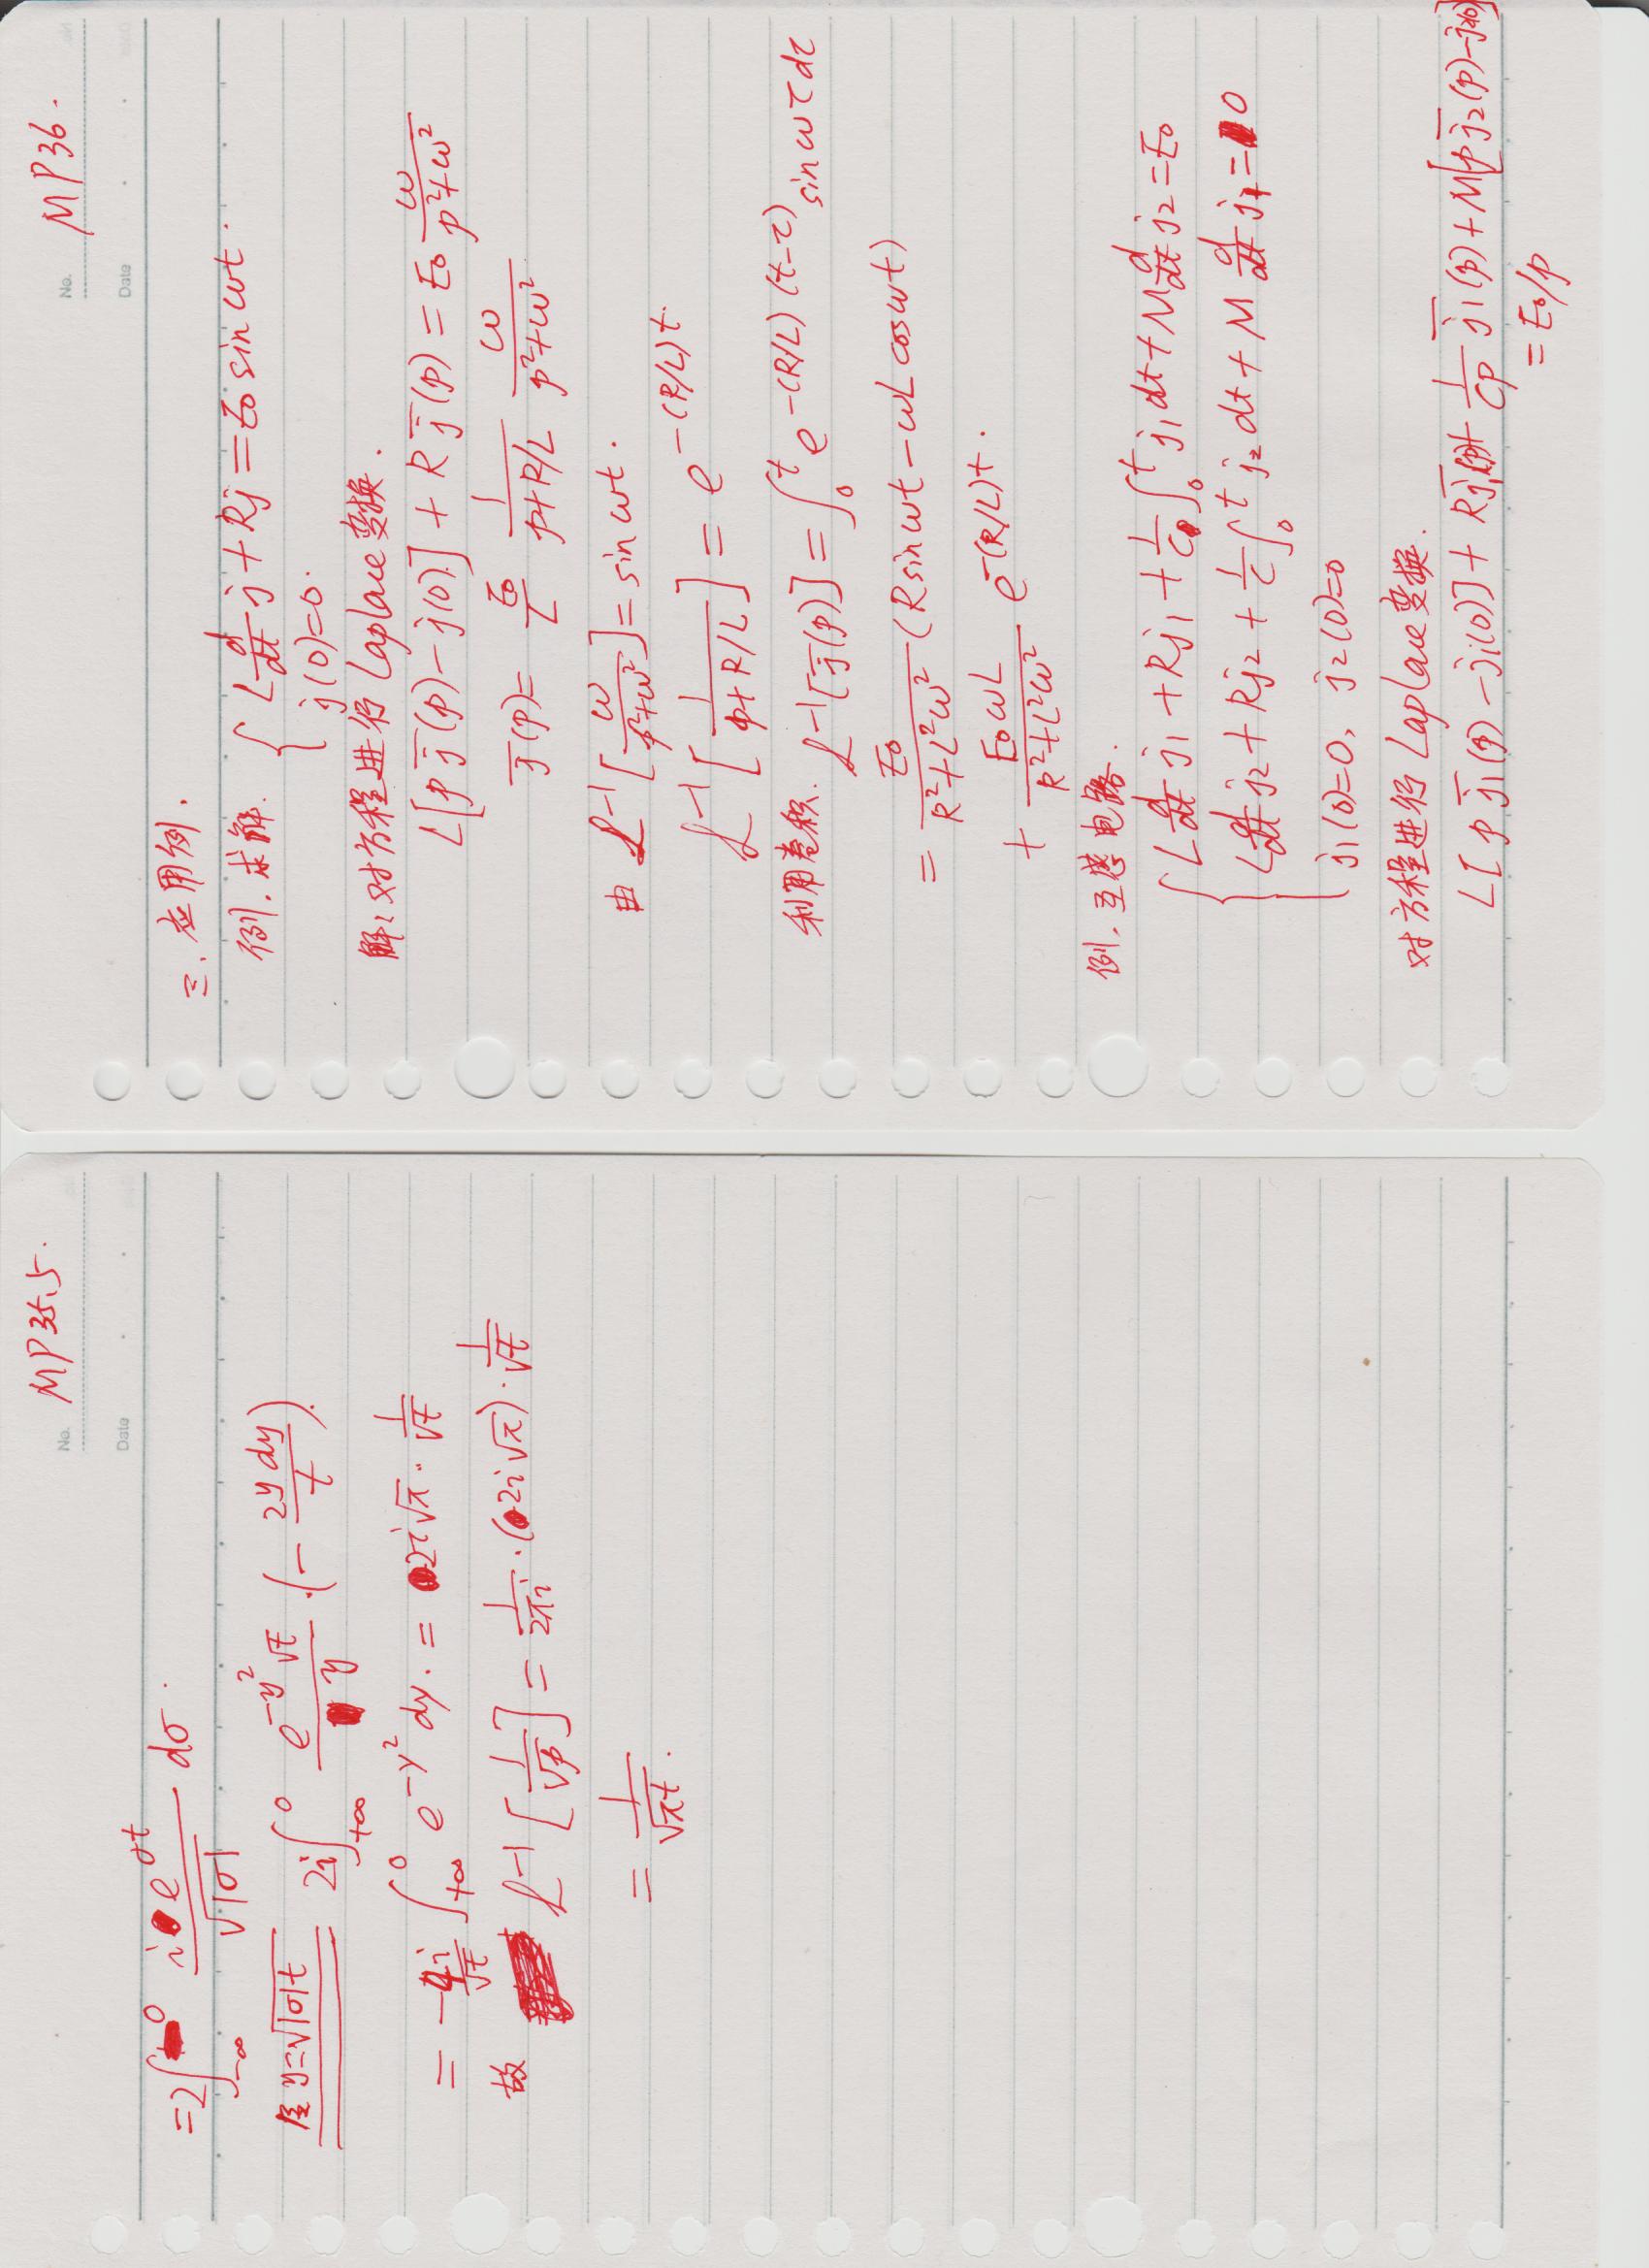 No. MP35.5.
Date
=2∫_{-∞}^{0} \frac{i e^{σt}}{\sqrt{|σ|}} dσ.
令 y=\sqrt{|σ|t} 2i∫_{+∞}^{0} \frac{e^{-y^2}\sqrt{t}}{y}·(-\frac{2y dy}{t}).
= -\frac{4i}{\sqrt{t}} ∫_{+∞}^{0} e^{-y^2} dy. = 2i\sqrt{π}·\frac{1}{\sqrt{t}}
故 ℒ^{-1}[\frac{1}{\sqrt{p}}] = \frac{1}{2πi}·(2i\sqrt{π})·\frac{1}{\sqrt{t}}
= \frac{1}{\sqrt{πt}}.
No. MP36.
Date
三. 应用例.
例. 求解. { L\frac{d}{dt}j+Rj=E_0 sin ωt.
j(0)=0.
解: 对方程进行 Laplace 变换.
L[p\bar{j}(p)-j(0)]+R\bar{j}(p)=E_0\frac{ω}{p^2+ω^2}
\bar{j}(p)= \frac{E_0}{L} \frac{1}{p+R/L} \frac{ω}{p^2+ω^2}
由 ℒ^{-1}[\frac{ω}{p^2+ω^2}]=sin ωt.
ℒ^{-1}[\frac{1}{p+R/L}] = e^{-(R/L)t}.
利用卷积. ℒ^{-1}[\bar{j}(p)]=∫_0^t e^{-(R/L)(t-τ)} sin ωτ dτ
= \frac{E_0}{R^2+L^2ω^2}(R sin ωt-ωL cos ωt)
+ \frac{E_0ωL}{R^2+L^2ω^2} e^{-(R/L)t}.
例. 互感电路.
{ L\frac{d}{dt}j_1+Rj_1+\frac{1}{C}∫_0^t j_1 dt+M\frac{d}{dt}j_2=E_0
L\frac{d}{dt}j_2+Rj_2+\frac{1}{C}∫_0^t j_2 dt+M\frac{d}{dt}j_1=0
j_1(0)=0, j_2(0)=0
对方程进行 Laplace 变换.
L[p\bar{j}_1(p)-j_1(0)]+R\bar{j}_1(p)+\frac{1}{Cp}\bar{j}_1(p)+M[p\bar{j}_2(p)-j_2(0)]
= E_0/p